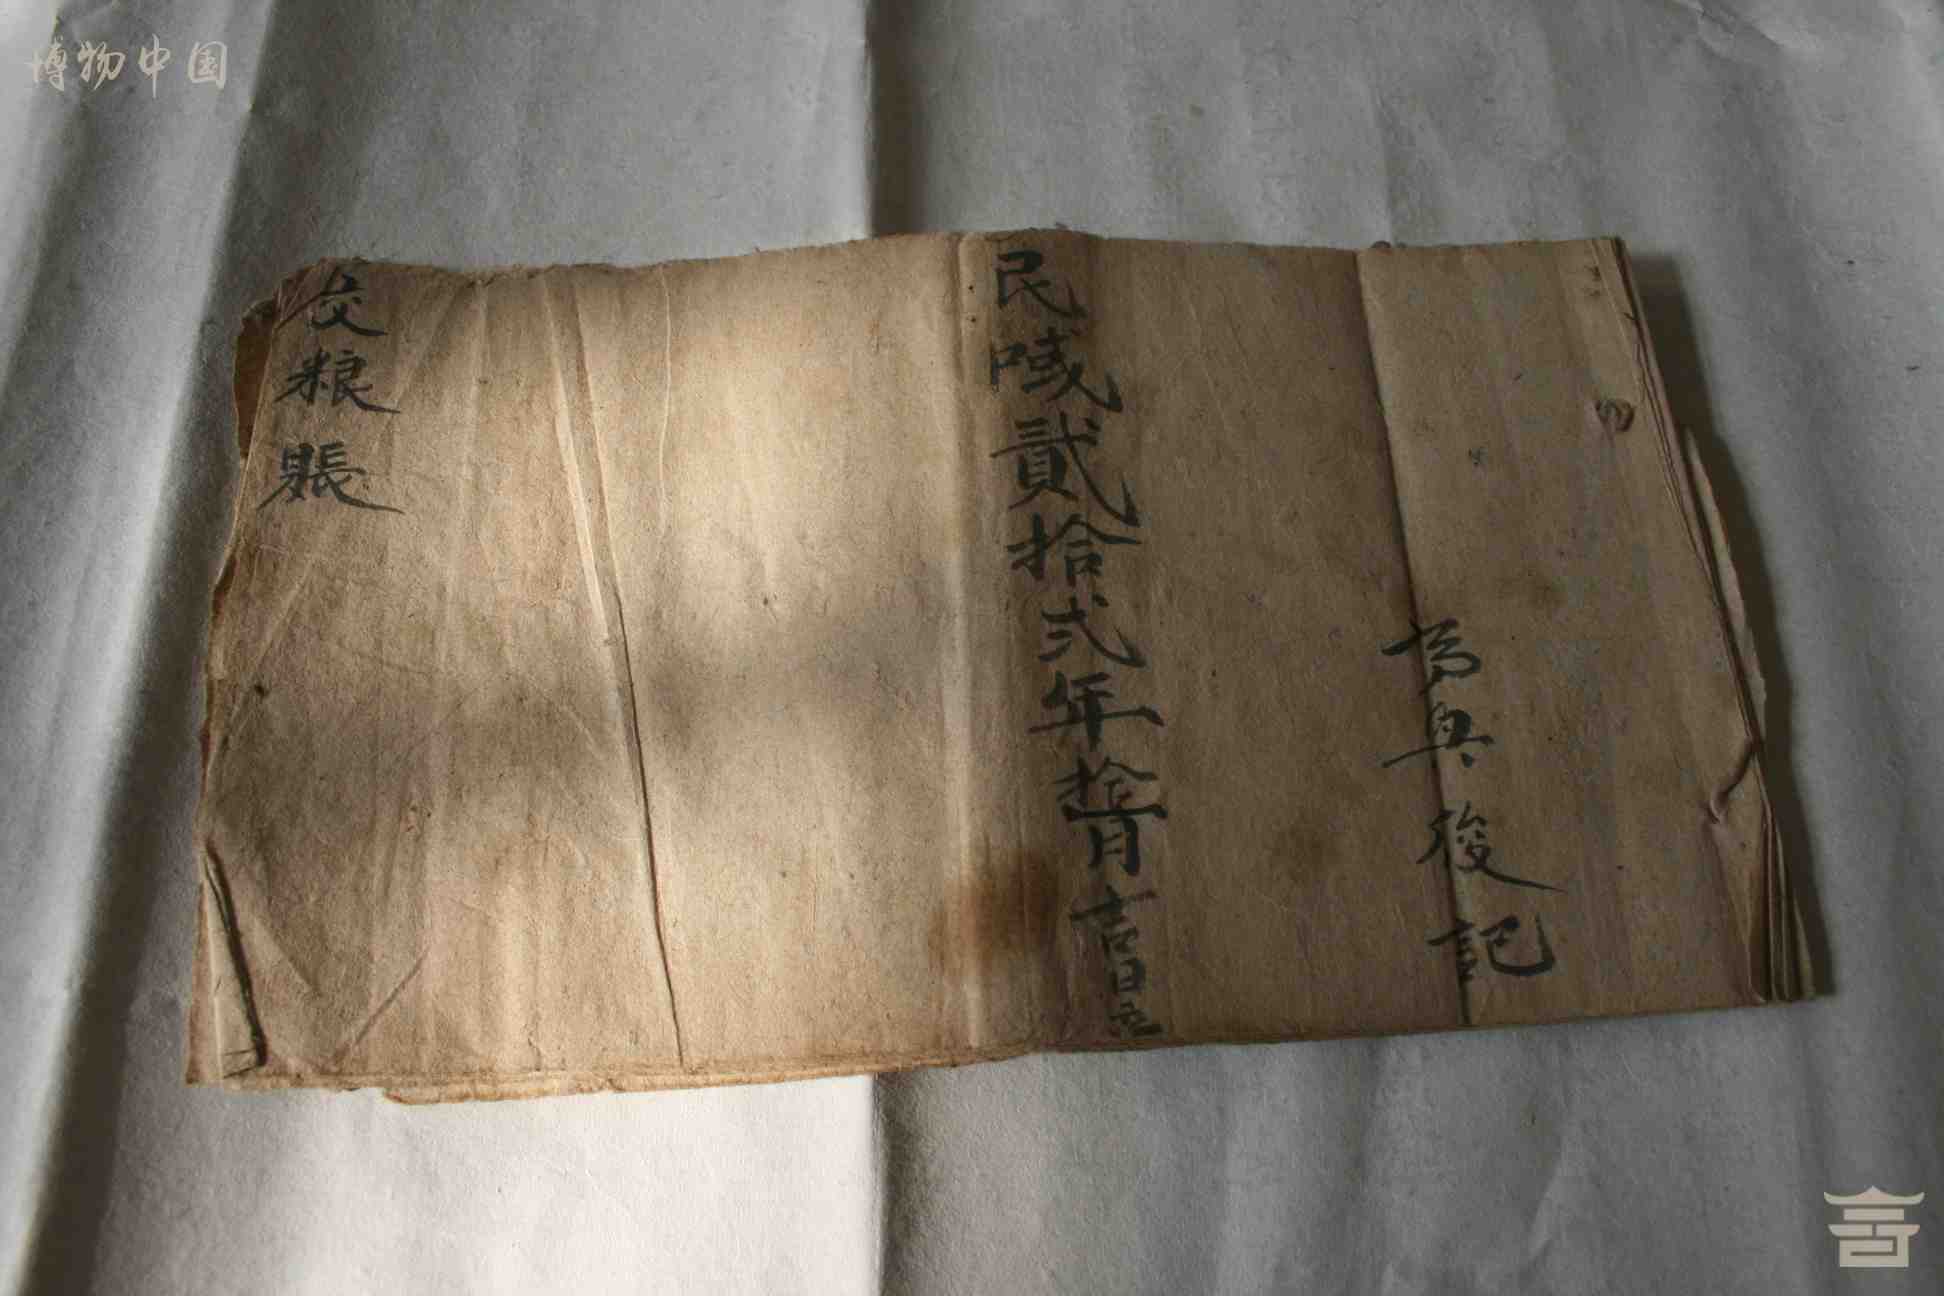 博物中国
為與後記
民國貳拾弍年拾月吉日立
交粮賬